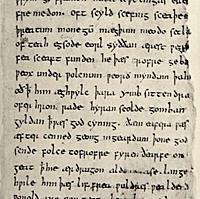 fre medon. oft scyld scefing sceaþe
þreatum monegū mægþum meodo setl
ofteah egsode eorl syððan ærest wea
feasceaft funden he þæs frofre geba
weox under wolcnum weorð myndum þah
oð ꝥ him æghwylc þara ymb sittendra
ofer hron rade hyran scolde gomban
gyldan ꝥ wæs god cyning. ðæm eafera wæs
æfter cenned geong in geardum þone god
sende folce tofrofre fyren ðearfe on
geat ꝥ hie ær drugon aldor ase. lange
hwile him þæs lif frea wuldres wealdend